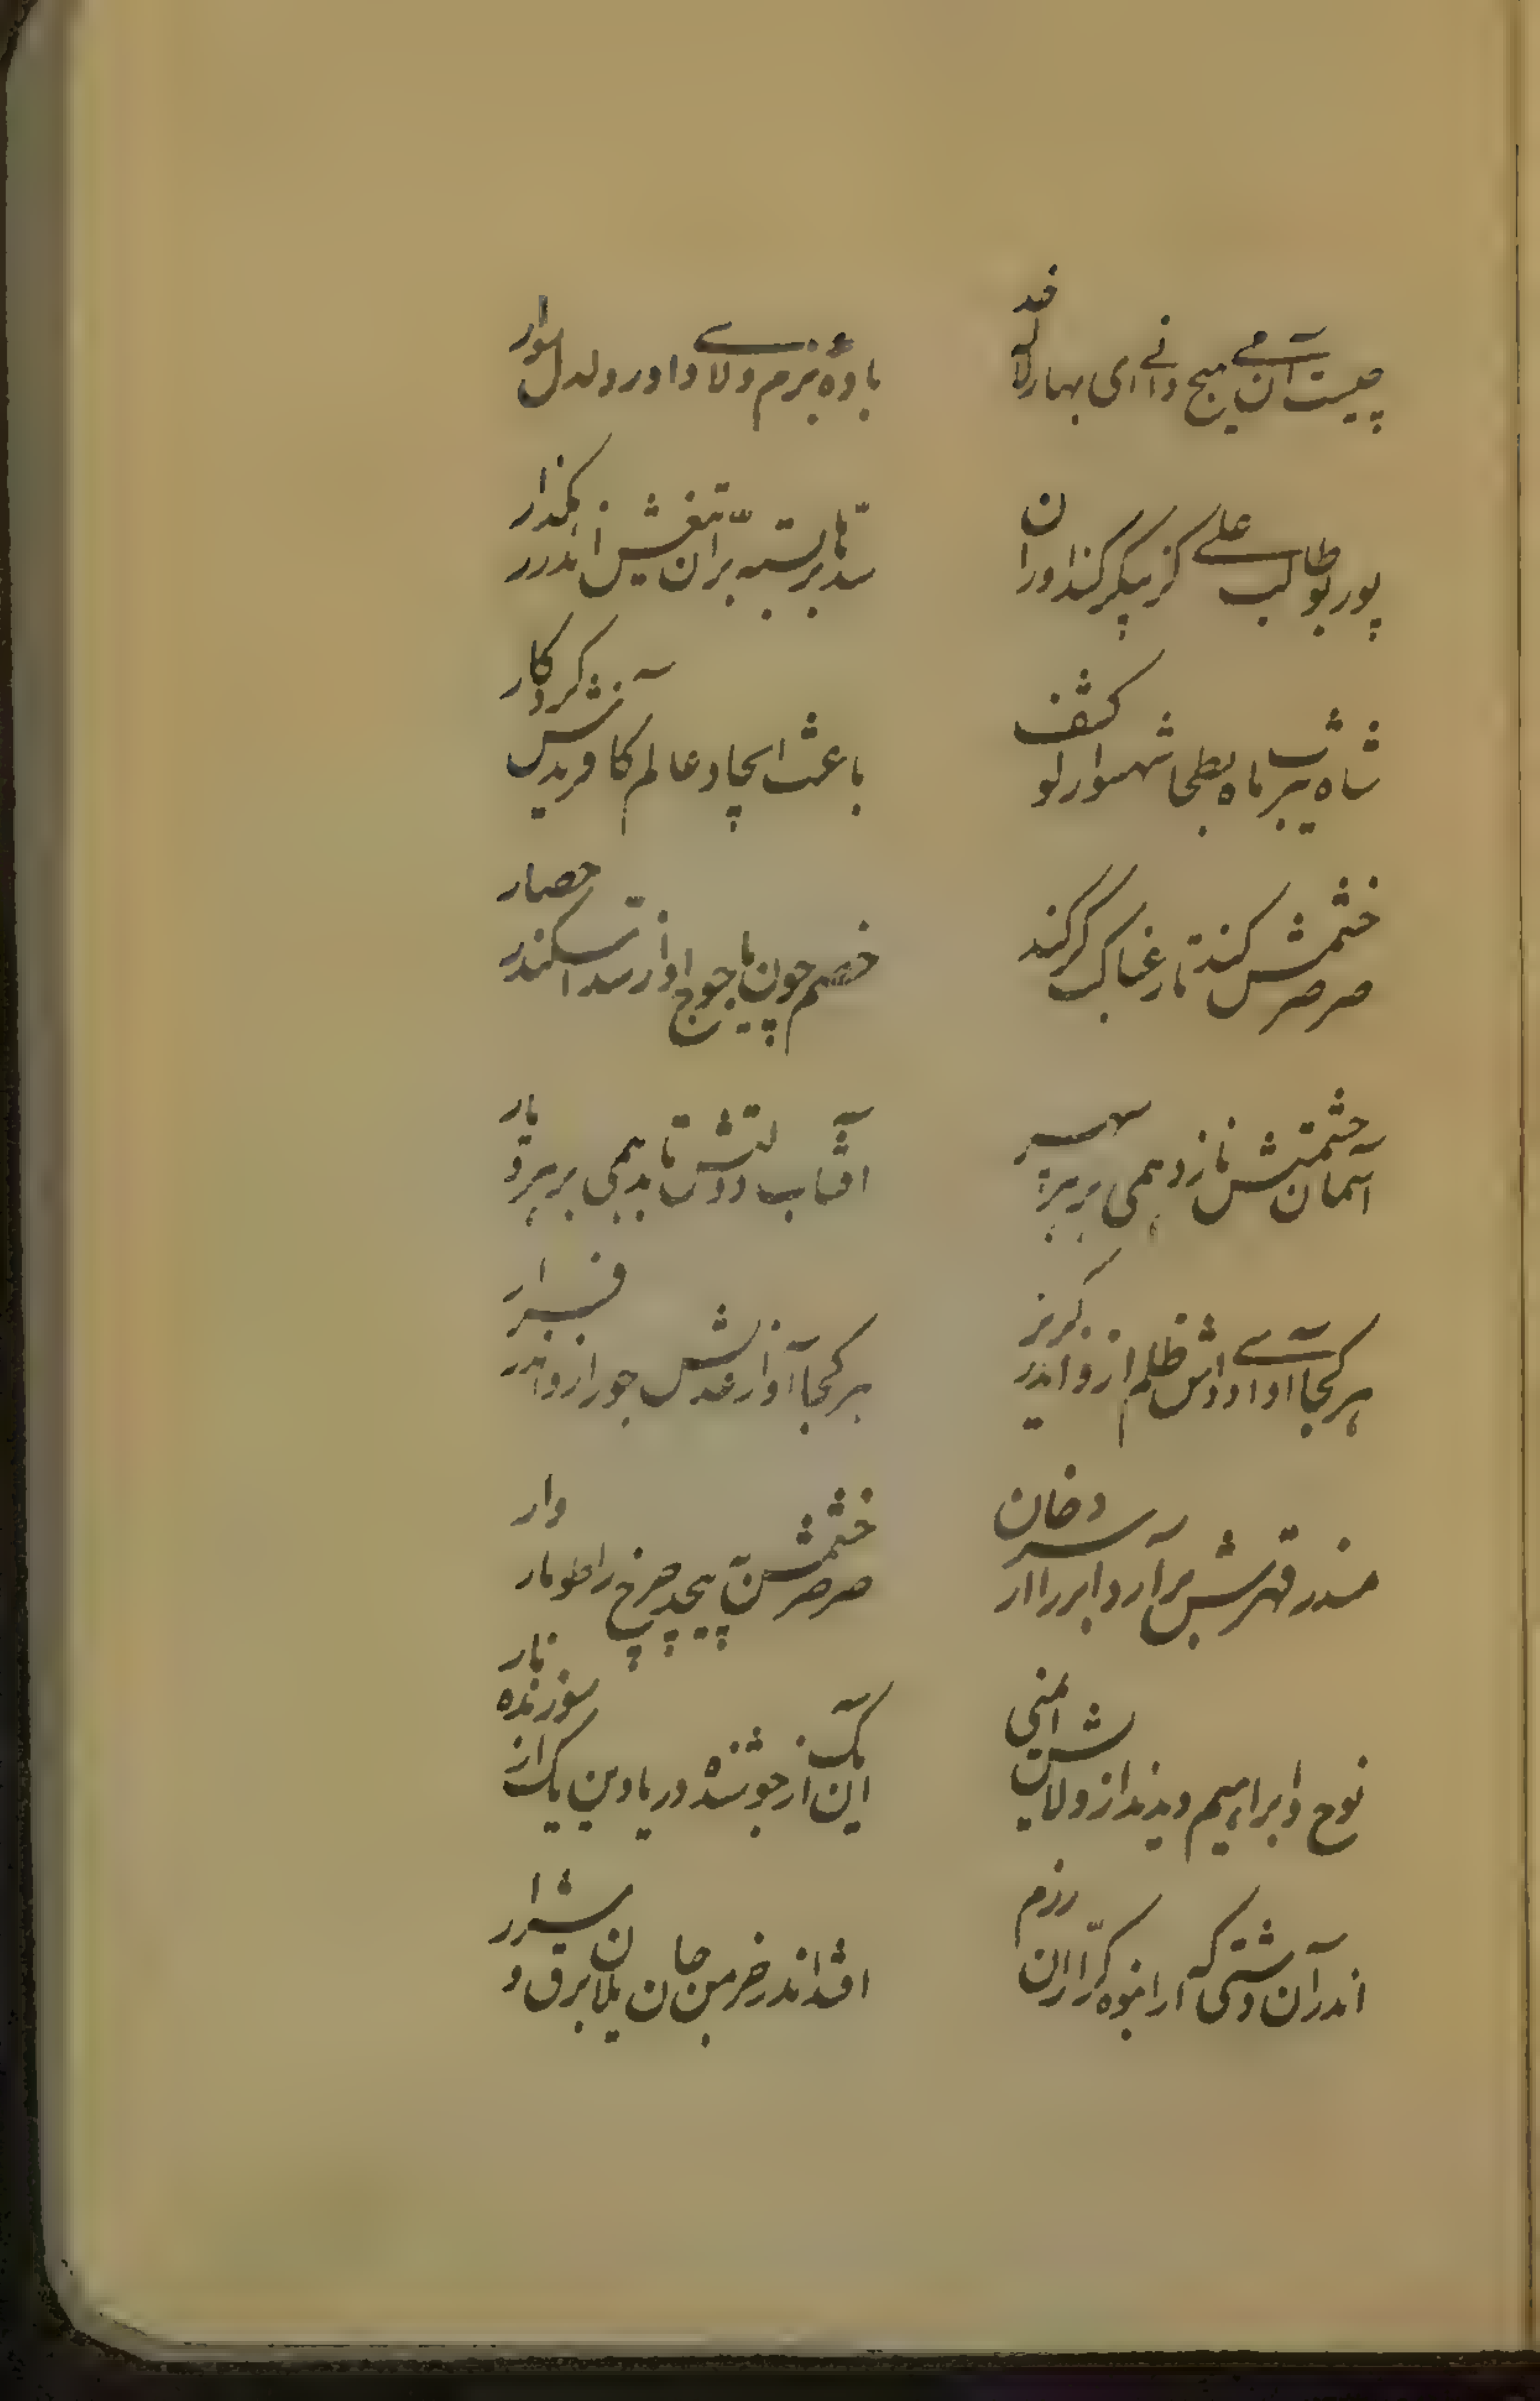 چیست آن می هیچ دانی ای بهار لاله خد
بادهٔ بزم ولای داور دلدل سوار
پور بوطالب علی کز پیکر کندآوران
سدّها بربسته برّان تیغش اندر رهگذار
شاه یثرب ماه بطحا شهسوار لو کشف
باعث ایجاد عالم کافرینش کردگار
صرصر خشمش کند تا رغبا گر کند
خصم چون یاجوج او را از سد اسکندر حصار
آسمان حشمتش نازد همی بر نه سپهر
آفتاب دولتش تابد همی بر هر دیار
هر کجا آوای دادش ظلم ازو اندر گریز
هر کجا آواز عدلش جور ازو اندر فرار
تندر قهرش برآرد ابر را از سر دخان
صرصر خشمش بپیچد چرخ را طوماروار
نوح و ابراهیم دیدند از ولایش ایمنی
این یک از جوشنده دریا وین یک از سوزنده نار
اندر آن دشتی که از انبوه کرّاران رزم
افتد اندر خرمن جان یلان برق و شرار